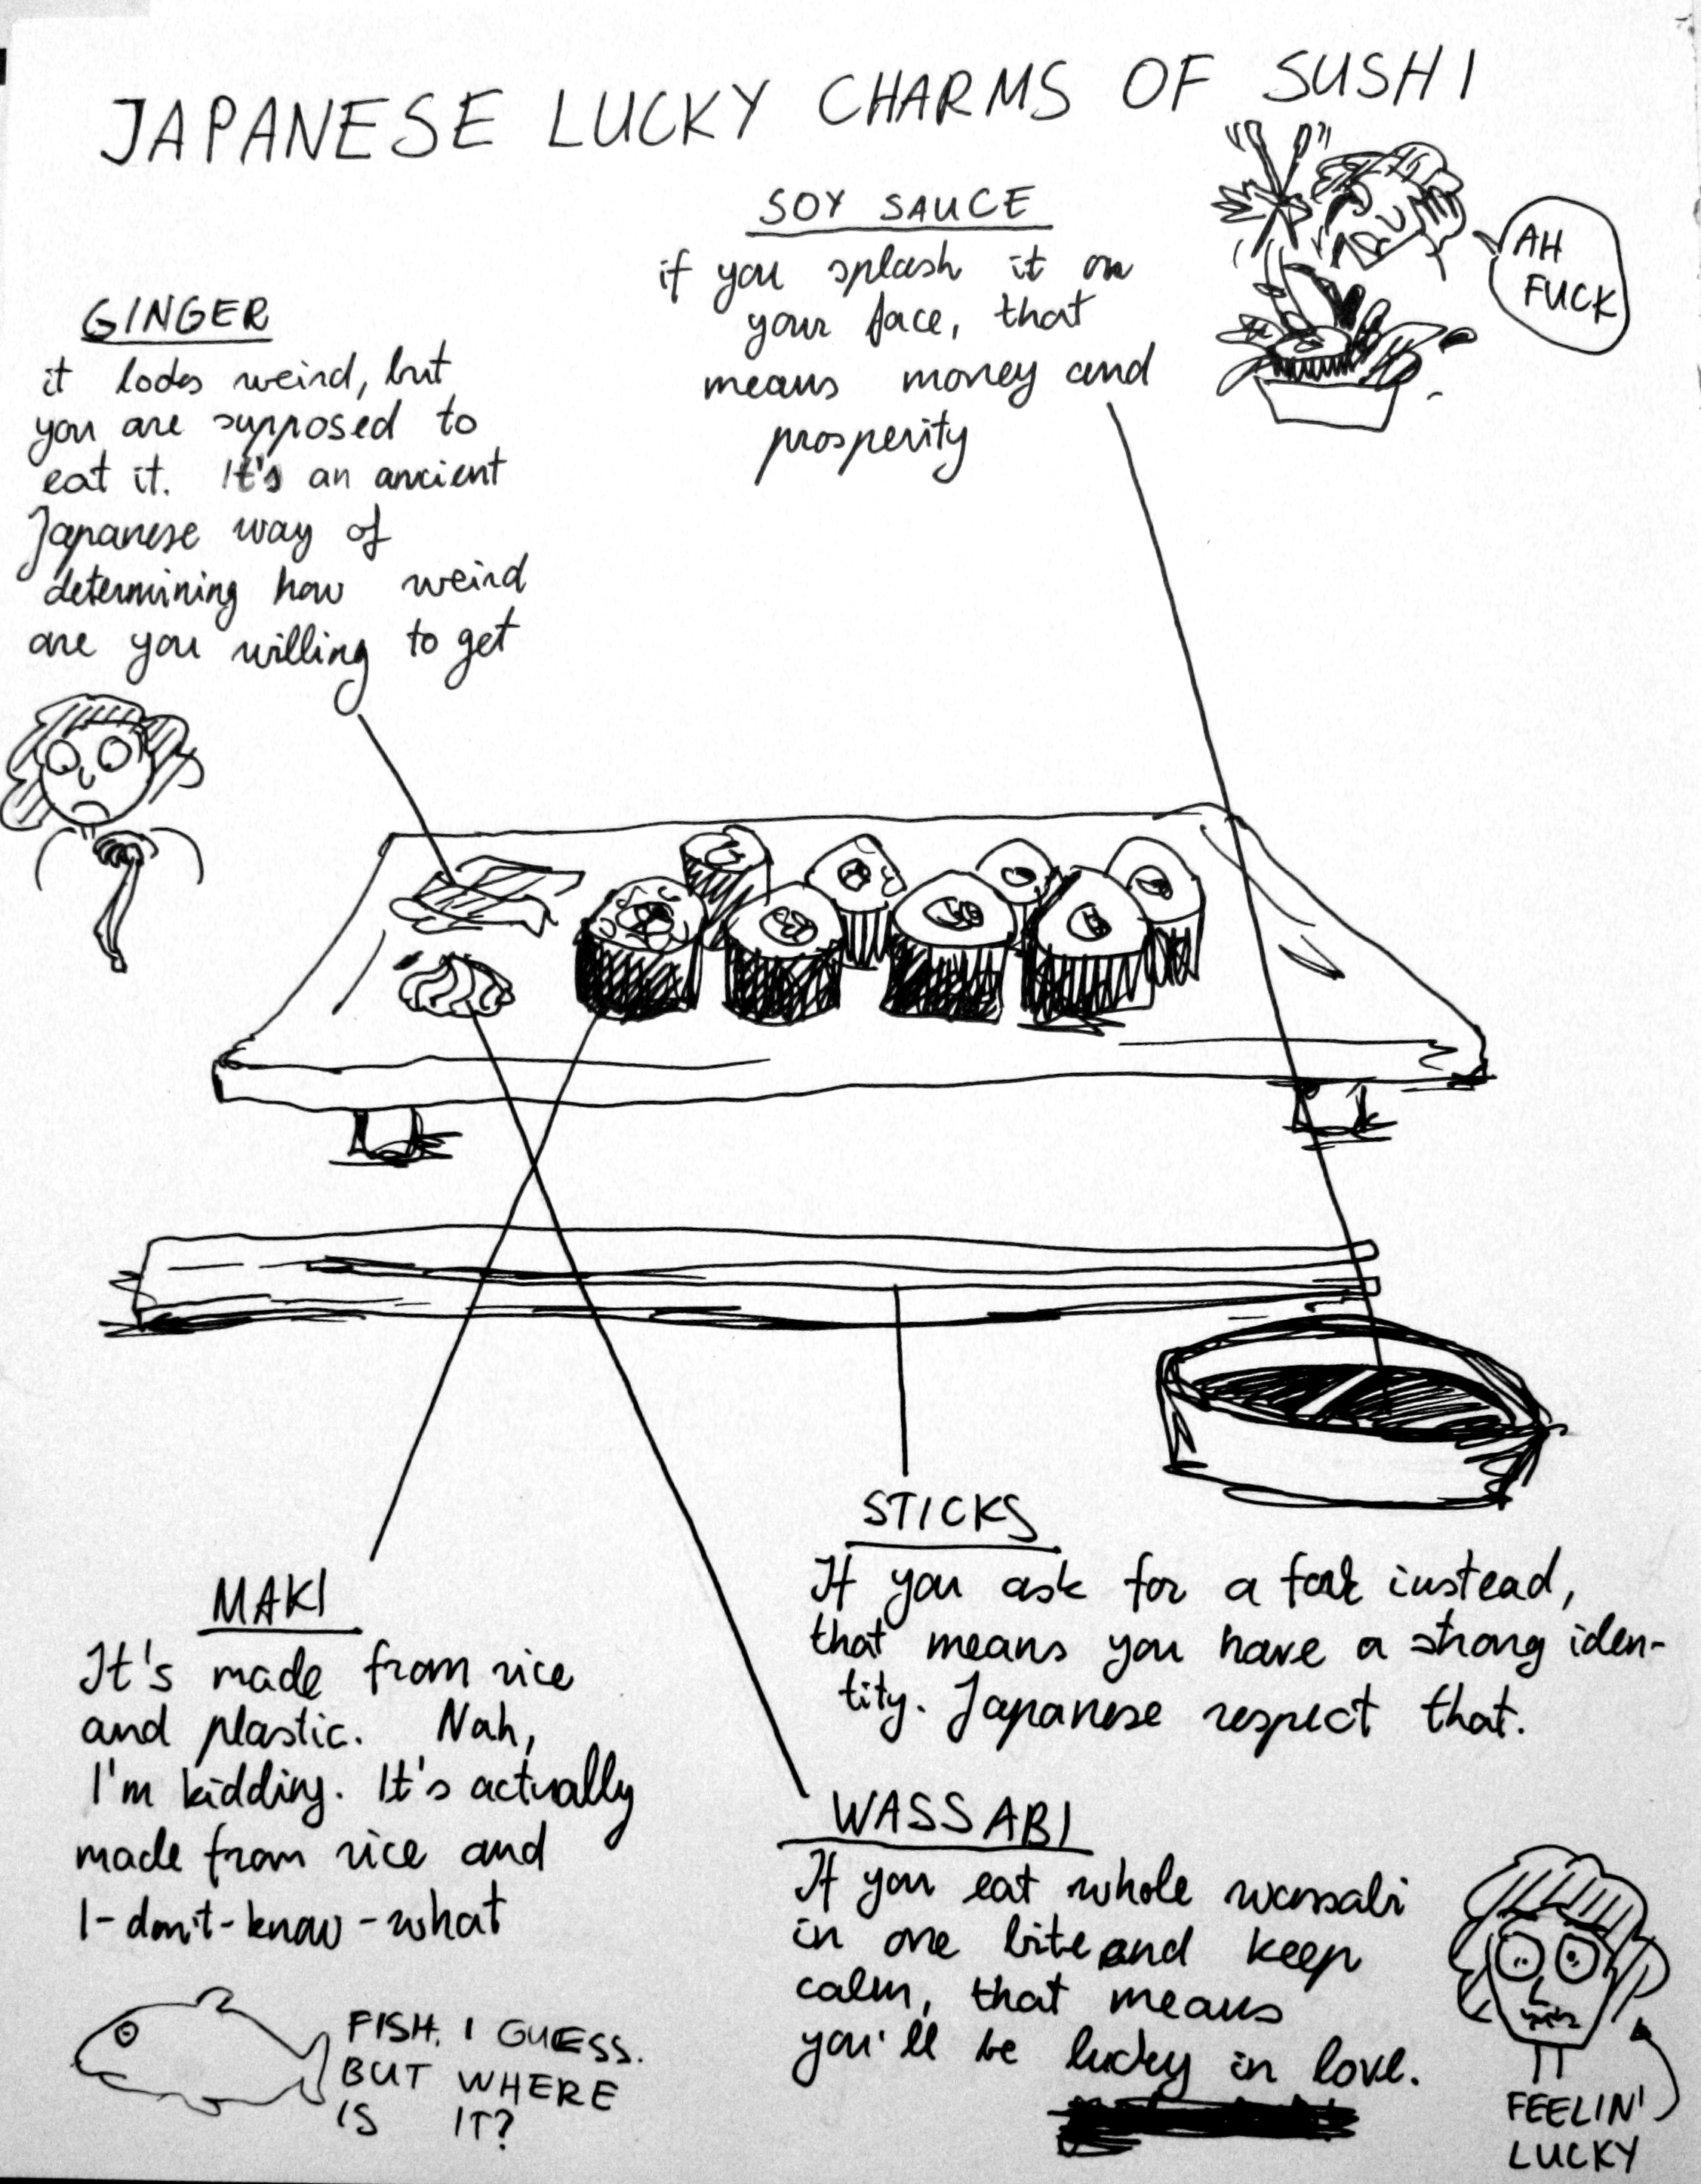 JAPANESE LUCKY CHARMS OF SUSHI
SOY SAUCE
if you splash it on
your face, that
means money and
prosperity
AH
FUCK
GINGER
it looks weird, but
you are supposed to
eat it. It's an ancient
Japanese way of
determining how weird
are you willing to get
STICKS
If you ask for a fork instead,
that means you have a strong iden-
tity. Japanese respect that.
MAKI
It's made from rice
and plastic. Nah,
I'm kidding. It's actually
made from rice and
I-don't-know-what
FISH, I GUESS.
BUT WHERE
IS IT?
WASSABI
If you eat whole wassabi
in one bite and keep
calm, that means
you'll be lucky in love.
FEELIN'
LUCKY